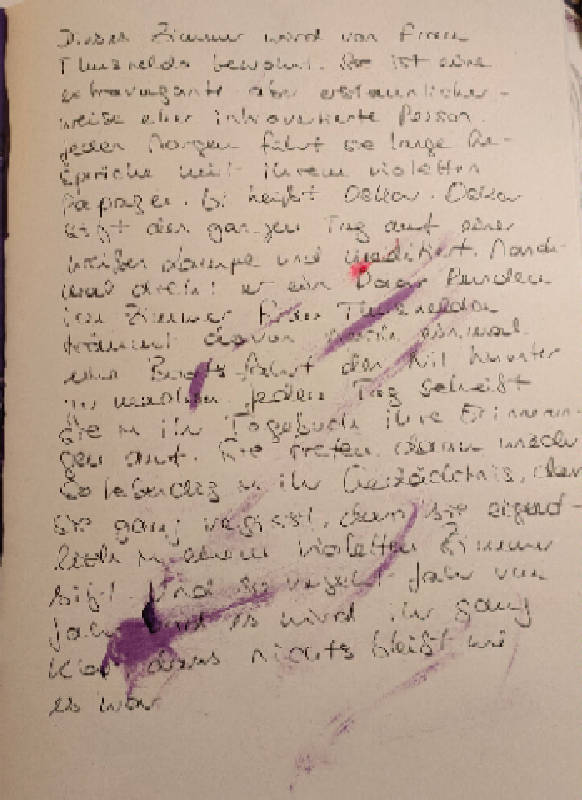 Dieses Zimmer wird von Frau
Thusnelda bewohnt. Sie ist eine
extravagante aber erstaunlicher-
weise eher introvertierte Person.
Jeden Morgen führt sie lange Ge-
spräche mit ihrem violetten
Papagei. Er heißt Oskar. Oskar
sitzt den ganzen Tag auf einer
weißen Lampe und meditiert. Manch-
mal dreht er ein paar Runden
im Zimmer. Frau Thusnelda
träumt davon noch einmal
eine Bootsfahrt den Nil hinunter
zu machen. Jeden Tag scheibt
sie in ihr Tagebuch ihre Erinnerun-
gen auf. Sie treten dann manch
so lebendig in ihr Gedächtnis, dass
sie ganz vegisst, dass sie eigend-
lich in einem violetten Zimmer
sitzt. Und so vegeht Jahr um
Jahr und es wird ihr ganz
klar, dass nichts bleibt wie
es war.